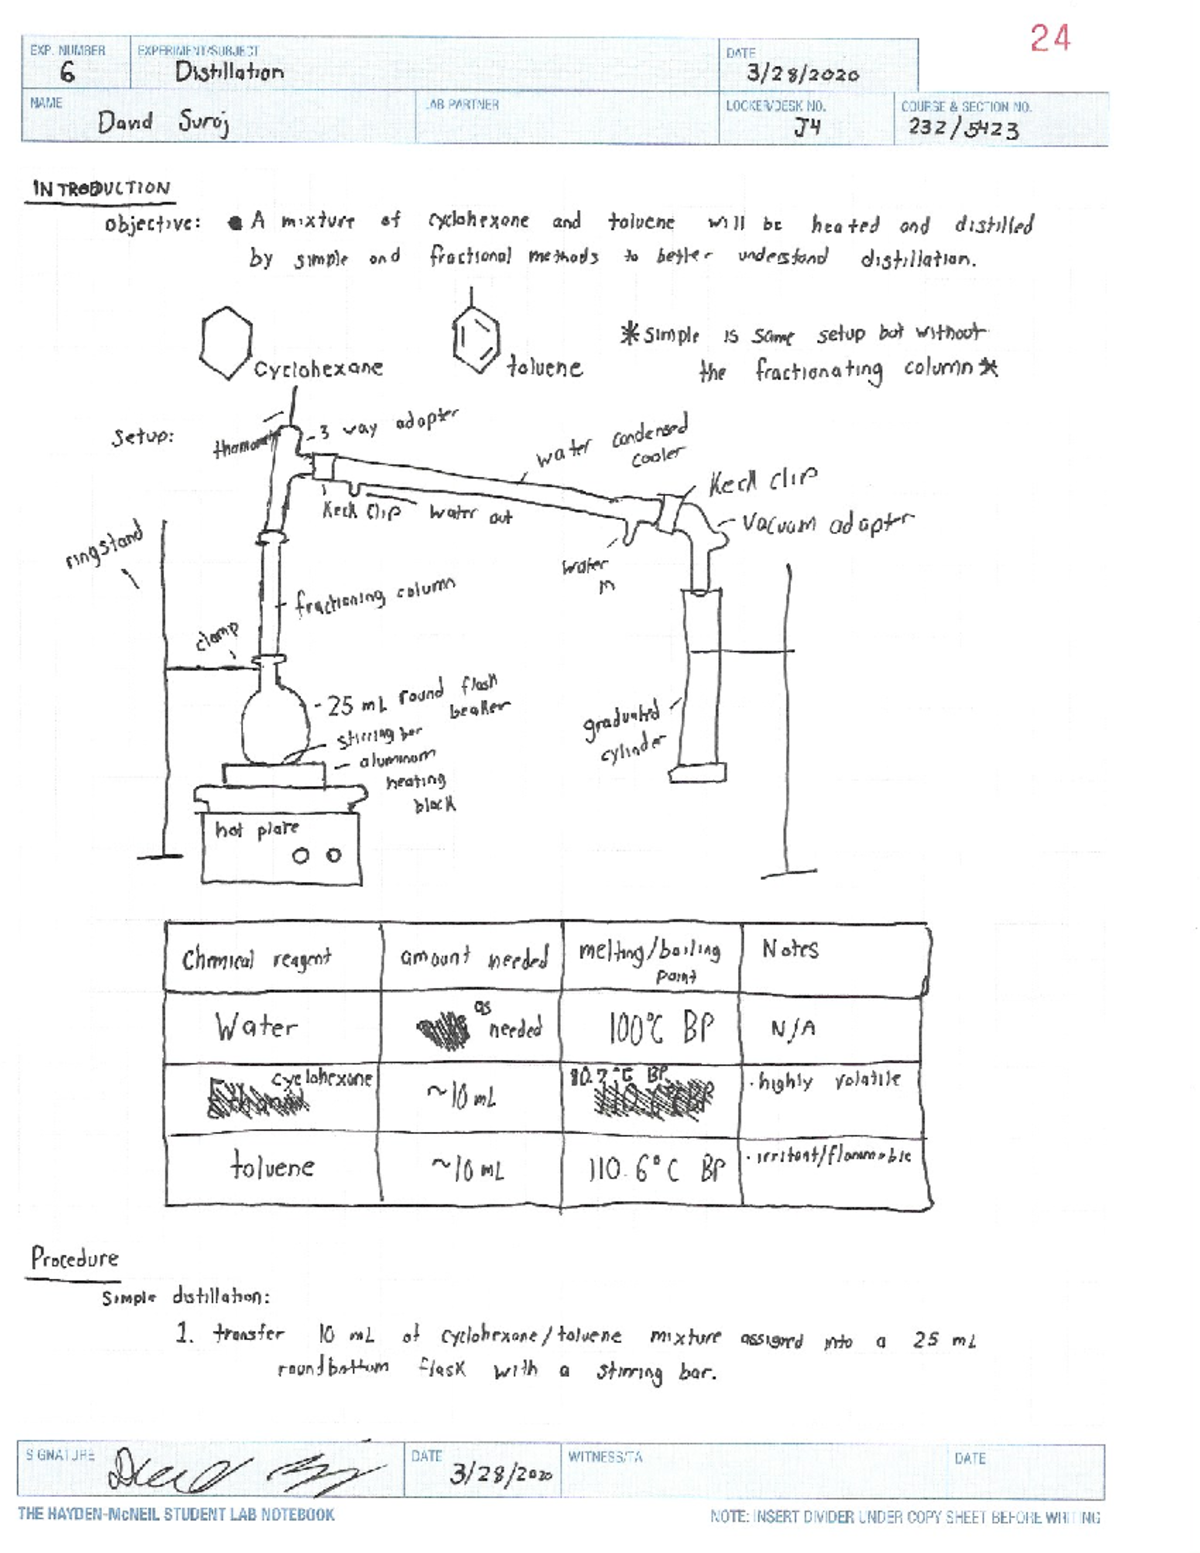 24
EXP. NUMBER EXPERIMENT/SUBJECT DATE
6 Distillation 3/28/2020
NAME LAB PARTNER LOCKER/DESK NO. COURSE & SECTION NO.
David Suroj J4 232/5423
INTRODUCTION
objective: • A mixture of cyclohexane and toluene will be heated and distilled
by simple and fractional methods to better understand distillation.
*simple is same setup but without
the fractionating column*
cyclohexane
toluene
Setup:
3 way adapter
water condensed
cooler
Keck clip
Keck clip
water out
vacuum adapter
ringstand
water
in
fractioning column
clamp
25 mL round flask
beaker
stirring bar
aluminum
heating
block
graduated
cylinder
hot plate
Chmical reagent amount needed melting/boiling point Notes
Water as needed 100°C BP N/A
cyclohexane ~10 mL 80.7°C BP · highly volatile
toluene ~10 mL 110.6°C BP · irritant/flammable
Procedure
Simple distillation:
1. transfer 10 mL of cyclohexane/toluene mixture assigned into a 25 mL
roundbottom flask with a stirring bar.
SIGNATURE DATE WITNESS/TA DATE
3/28/2020
THE HAYDEN-McNEIL STUDENT LAB NOTEBOOK NOTE: INSERT DIVIDER UNDER COPY SHEET BEFORE WRITING